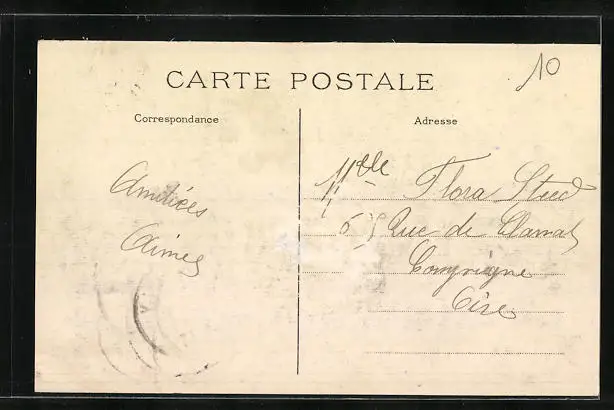 10
CARTE POSTALE
Correspondance
Adresse
Amitiées
Aimés
Mlle Flora Steed
65 Rue de Clamat
Compiègne
Oise